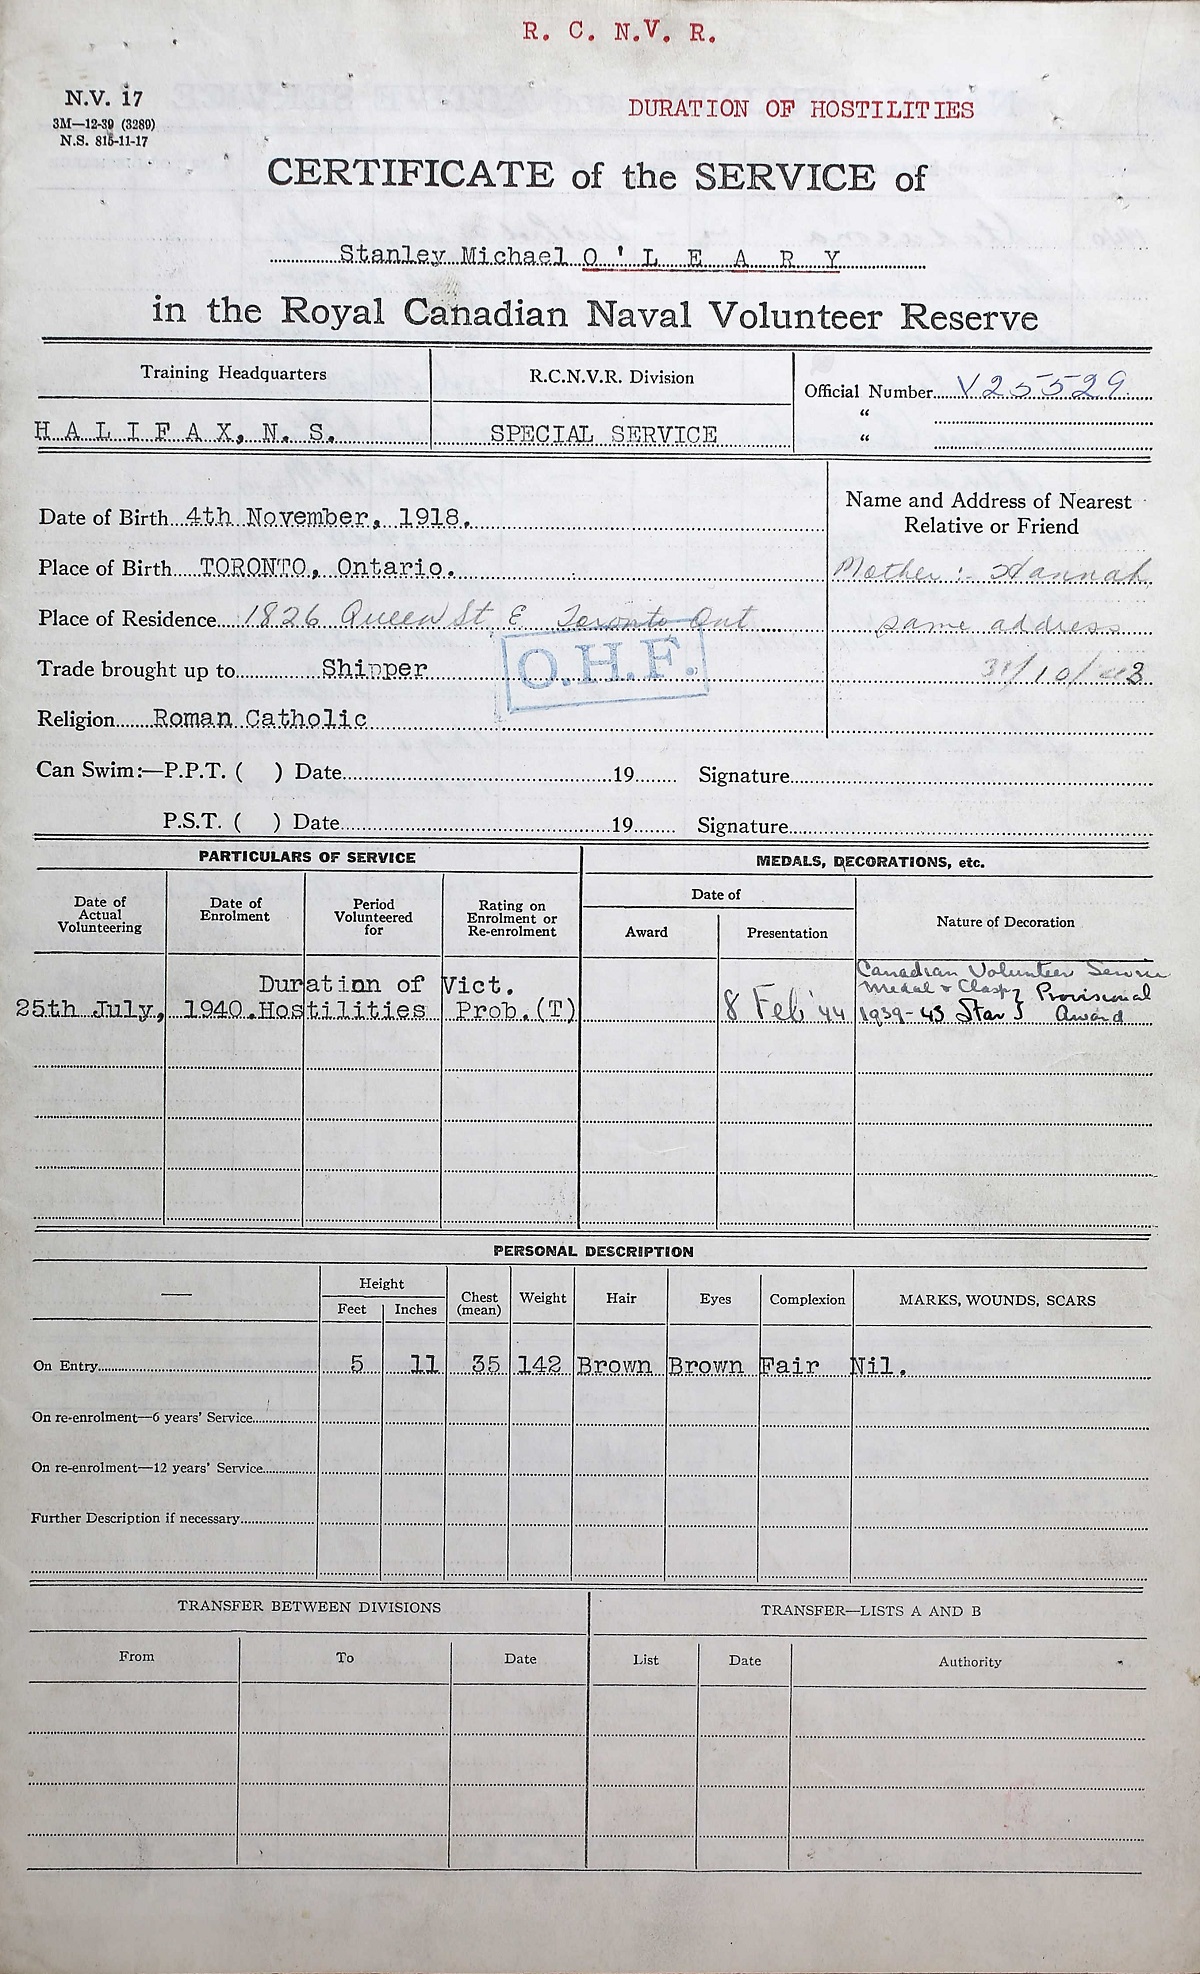 R. C. N.V. R.
N.V. 17
3M—12-39 (3289)
N.S. 815-11-17
DURATION OF HOSTILITIES
CERTIFICATE of the SERVICE of
Stanley Michael O ' L E A R Y
in the Royal Canadian Naval Volunteer Reserve
Training Headquarters
R.C.N.V.R. Division
Official Number V25529
"
"
H A L I F A X, N. S.
SPECIAL SERVICE
Date of Birth 4th November, 1918.
Name and Address of Nearest
Relative or Friend
Place of Birth TORONTO, Ontario.
Mother :- Hannah
Place of Residence 1826 Queen St E Toronto Ont
same address
Trade brought up to Shipper
O.H.F.
31/10/43
Religion Roman Catholic
Can Swim:—P.P.T. ( ) Date 19 Signature
P.S.T. ( ) Date 19 Signature
PARTICULARS OF SERVICE
MEDALS, DECORATIONS, etc.
Date of
Actual
Volunteering
Date of
Enrolment
Period
Volunteered
for
Rating on
Enrolment or
Re-enrolment
Date of
Award
Presentation
Nature of Decoration
Duration of Vict.
25th July, 1940. Hostilities Prob.(T)
8 Feb '44
Canadian Volunteer Service
Medal & Clasp } Provisional
1939-43 Star } Award
PERSONAL DESCRIPTION
—
Height
Feet
Inches
Chest
(mean)
Weight
Hair
Eyes
Complexion
MARKS, WOUNDS, SCARS
On Entry 5 11 35 142 Brown Brown Fair Nil.
On re-enrolment—6 years' Service
On re-enrolment—12 years' Service
Further Description if necessary
TRANSFER BETWEEN DIVISIONS
TRANSFER—LISTS A AND B
From
To
Date
List
Date
Authority